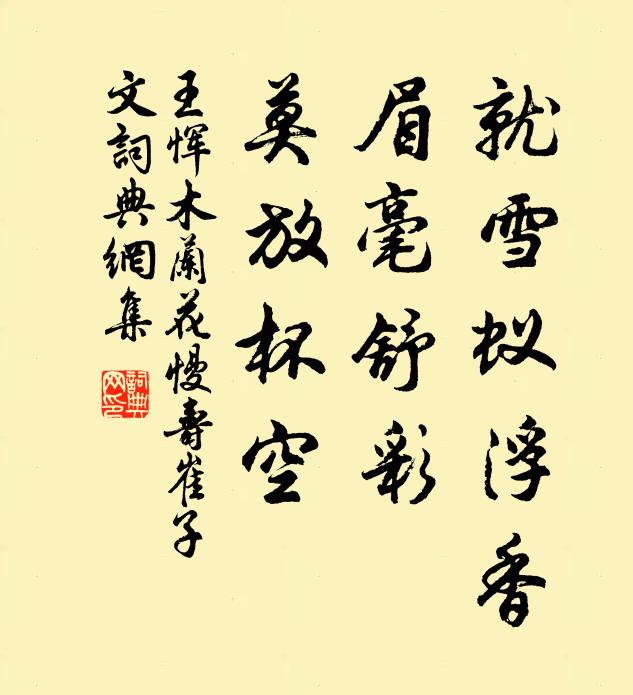 就雪蚁浮香
眉毫舒彩
莫放杯空
王恽木蘭花慢壽崔子
文詞典網集
詞典
网印